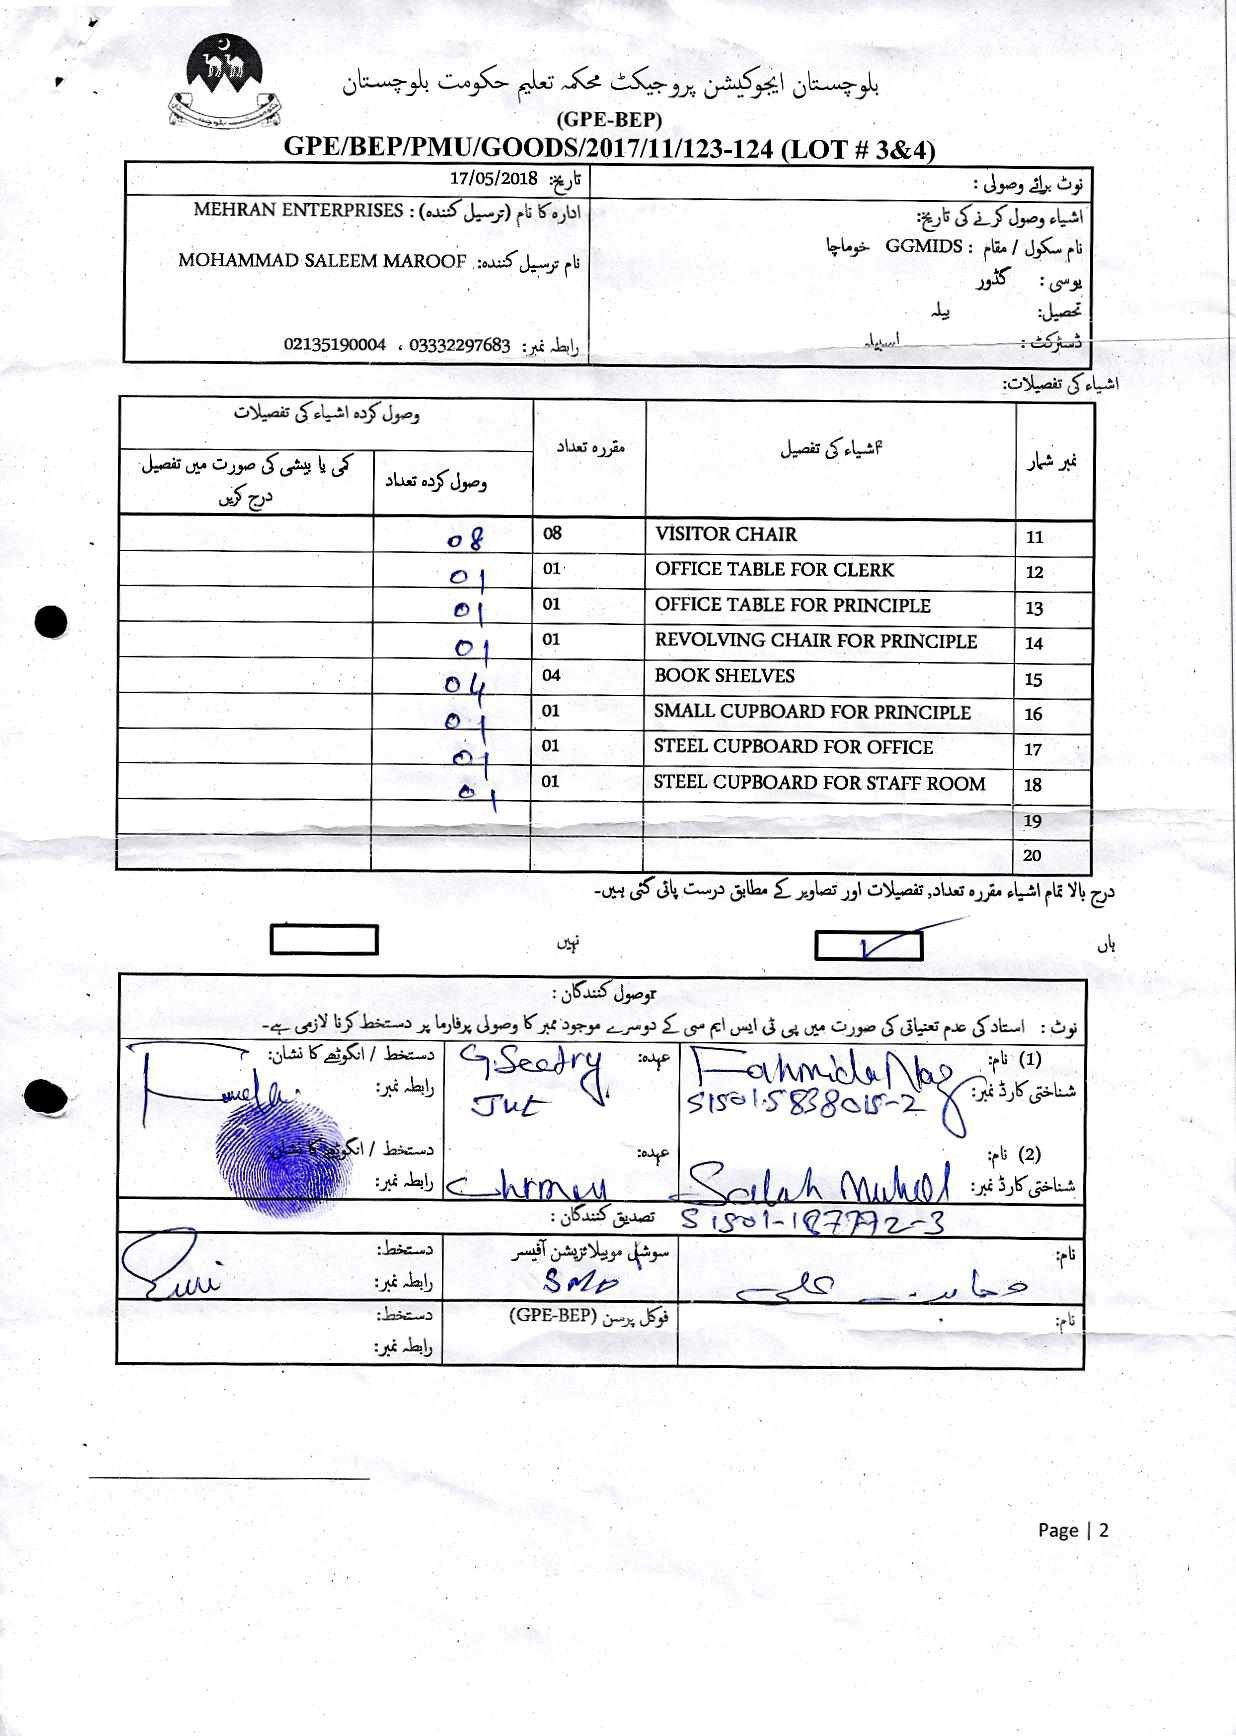 بلوچستان ایجوکیشن پروجیکٹ محکمہ تعلیم حکومت بلوچستان
(GPE-BEP)
GPE/BEP/PMU/GOODS/2017/11/123-124 (LOT # 3&4)
نوٹ برائے وصولی :
تاریخ: 17/05/2018
اشیاء وصول کرنے کی تاریخ:
ادارہ کا نام (ترسیل کنندہ) : MEHRAN ENTERPRISES
نام سکول / مقام : GGMIDS خوماچا
نام ترسیل کنندہ: MOHAMMAD SALEEM MAROOF
یو سی : گڈور
تحصیل: بیلہ
ڈسٹرکٹ : لسبیلہ
رابطہ نمبر: 03332297683 ، 02135190004
اشیاء کی تفصیلات:
نمبر شمار اشیاء کی تفصیل مقررہ تعداد وصول کردہ اشیاء کی تفصیلات
وصول کردہ تعداد کمی یا بیشی کی صورت میں تفصیل درج کریں
11 VISITOR CHAIR 08 08
12 OFFICE TABLE FOR CLERK 01 01
13 OFFICE TABLE FOR PRINCIPLE 01 01
14 REVOLVING CHAIR FOR PRINCIPLE 01 01
15 BOOK SHELVES 04 04
16 SMALL CUPBOARD FOR PRINCIPLE 01 01
17 STEEL CUPBOARD FOR OFFICE 01 01
18 STEEL CUPBOARD FOR STAFF ROOM 01 01
19
20
درج بالا تمام اشیاء مقررہ تعداد, تفصیلات اور تصاویر کے مطابق درست پائی گئی ہیں۔
ہاں نہیں
وصول کنندگان :
نوٹ : استاد کی عدم تعیناتی کی صورت میں پی ٹی ایس ایم سی کے دوسرے موجود ممبر کا وصولی پرفارما پر دستخط کرنا لازمی ہے۔
(1) نام: Fahmida Naz عہدہ: دستخط / انگوٹھے کا نشان:
شناختی کارڈ نمبر: 51501-5838015-2 رابطہ نمبر:
(2) نام: عہدہ: دستخط / انگوٹھے کا نشان:
شناختی کارڈ نمبر: Salah رابطہ نمبر:
تصدیق کنندگان :
نام: سوشل موبیلائزیشن آفیسر دستخط:
علی SMO رابطہ نمبر:
نام: فوکل پرسن (GPE-BEP) دستخط:
رابطہ نمبر:
Page | 2